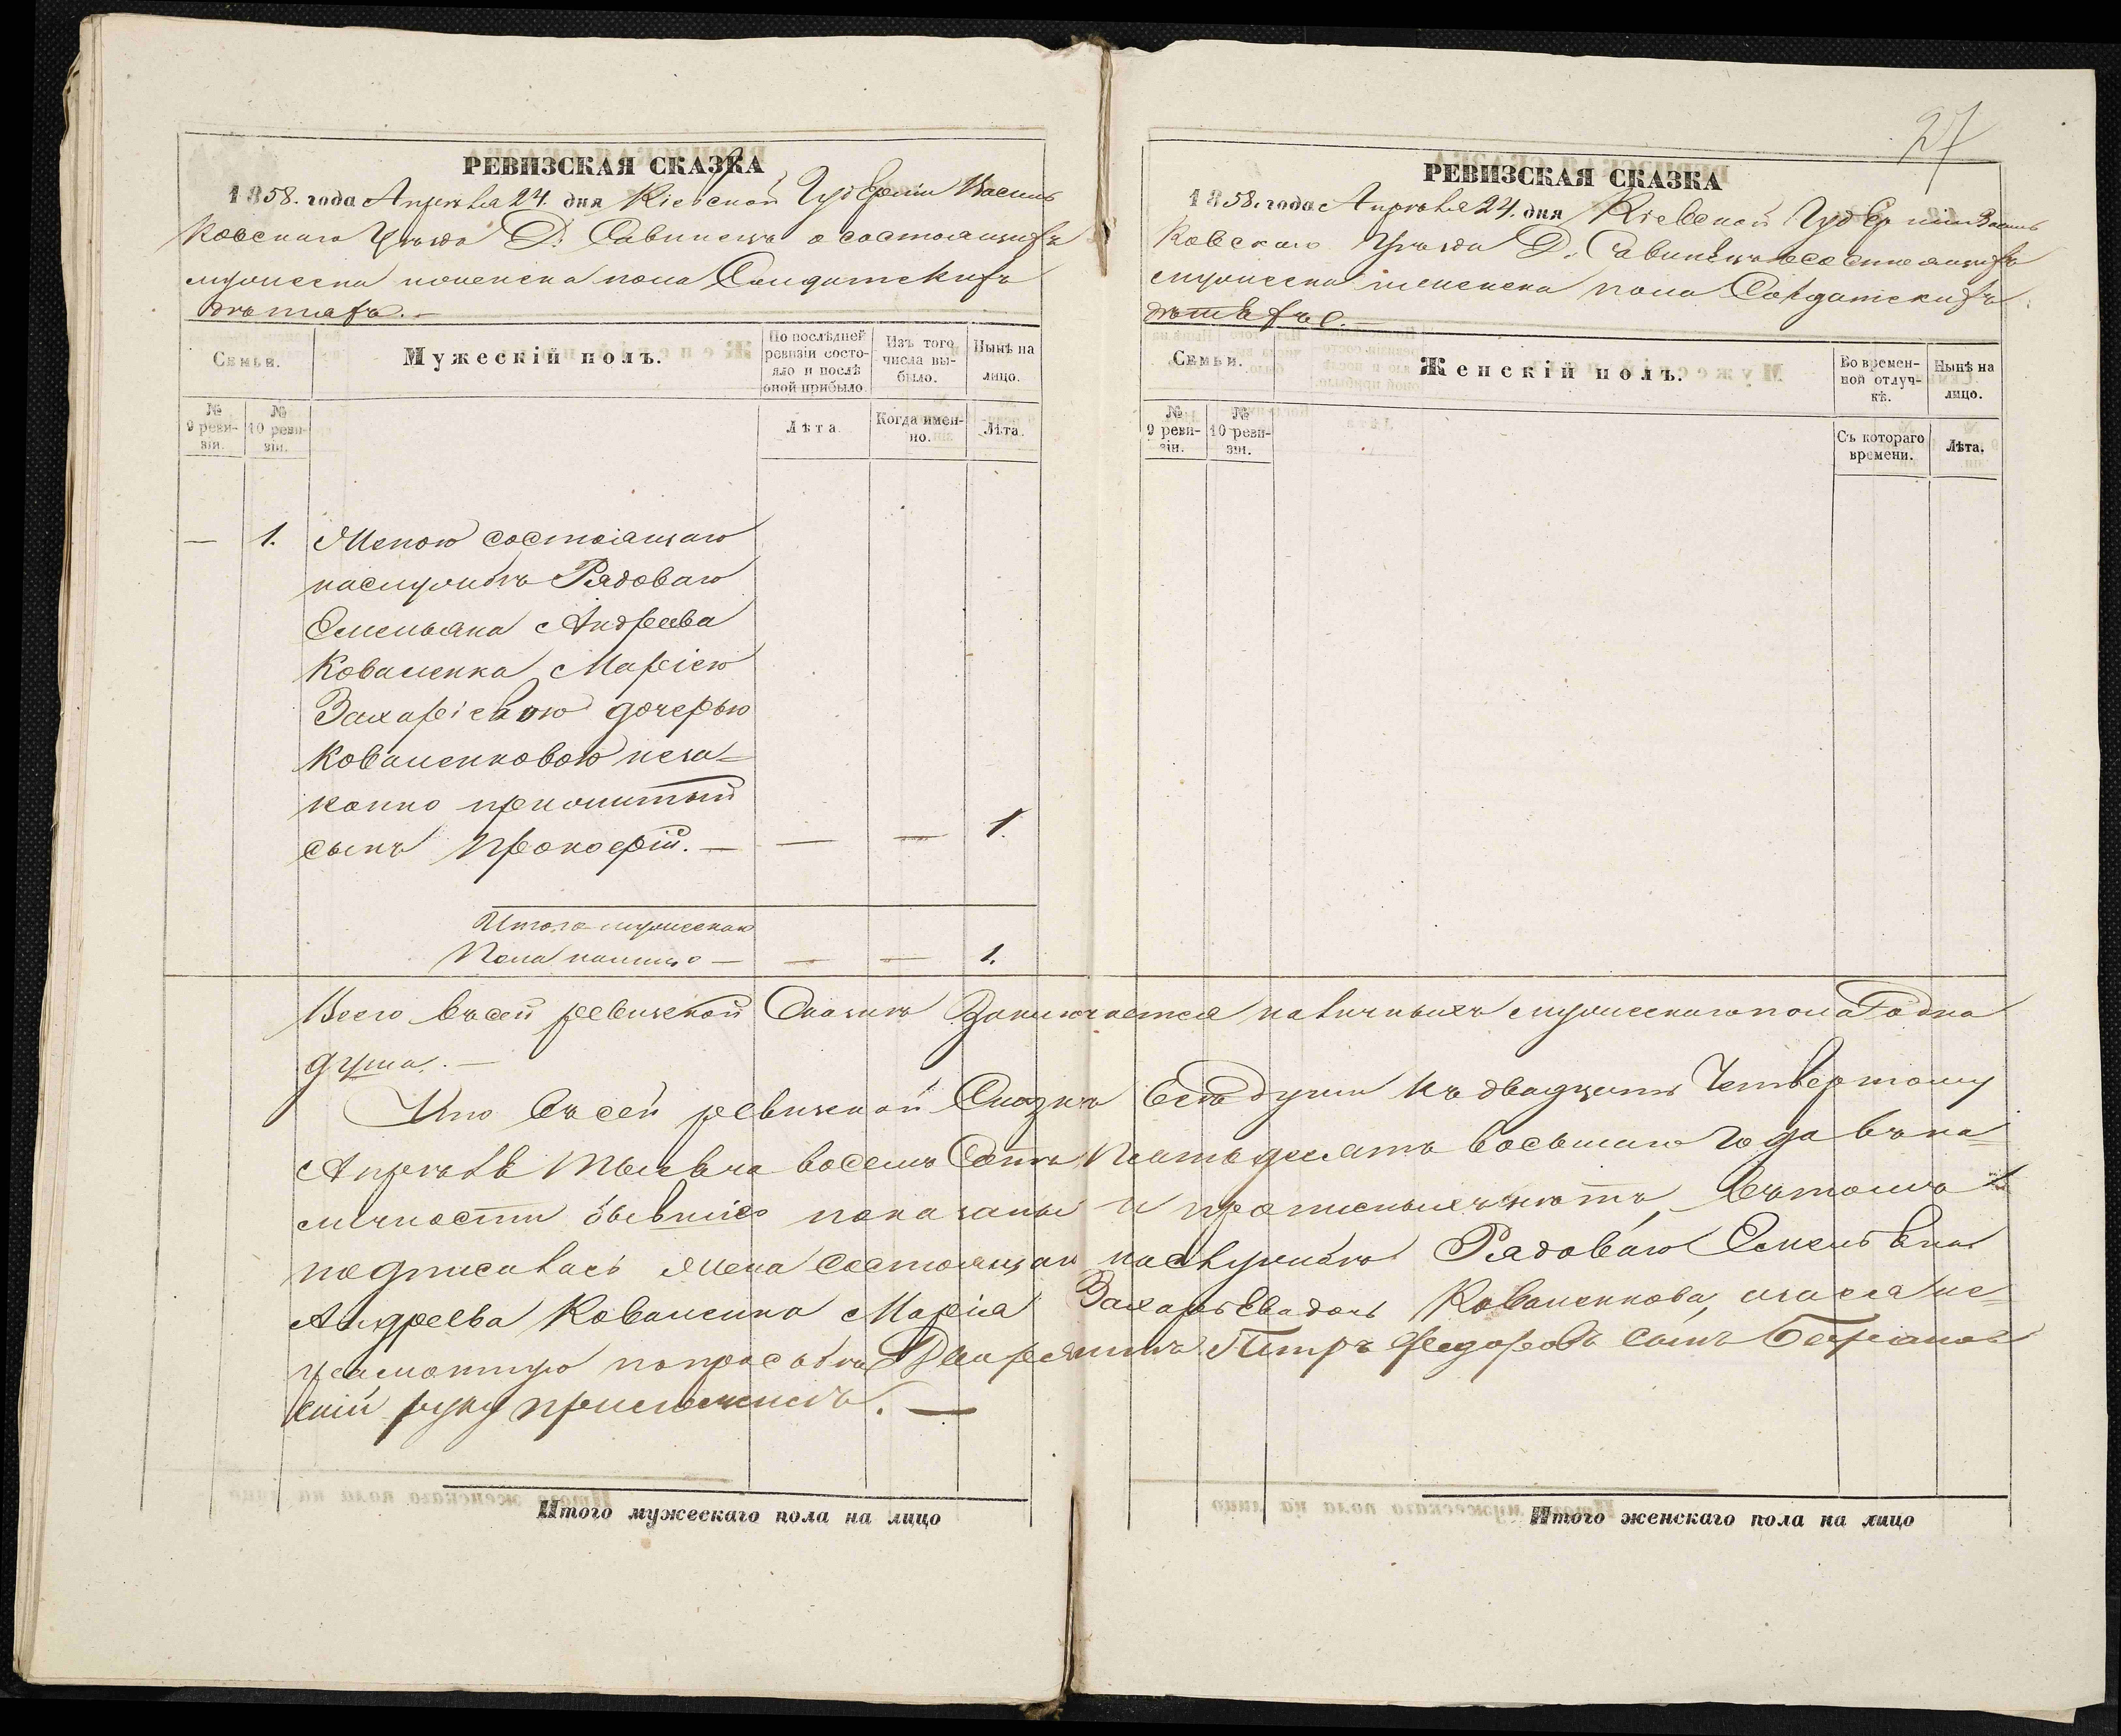 27
РЕВИЗСКАЯ СКАЗКА
1858. года Апрѣля 24. дня Кіевской Губерніи Василь
ковскаго Уѣзда Д. Савинецъ о состоящихъ
мужеска и женска пола Солдатскихъ
дѣтяхъ.—
Семьи.
Мужескій полъ.
По послѣдней ревизіи состояло и послѣ оной прибыло.
Изъ того числа выбыло.
Нынѣ на лицо.
№ 9 ревизіи.
№ 10 ревизіи.
Лѣта.
Когда именно.
Лѣта.
— 1. Женою состоящаго
наслужбѣ Рядоваго
Емельяна Андреева
Коваленка Маріею
Захаріевою дочерью
Коваленковою неза=
конно прижитый
сынъ Прокофій. — — — 1.
Итого мужескаго
Пола налицо — — — 1.
РЕВИЗСКАЯ СКАЗКА
1858. года Апрѣля 24. дня Кіевской Губерніи Василь
ковскаго Уѣзда Д. Савинецъ о состоящихъ
мужеска и женска пола Солдатскихъ
дѣтяхъ.—
Семьи.
Женскій полъ.
Во временной отлучкѣ.
Нынѣ на лицо.
№ 9 ревизіи.
№ 10 ревизіи.
Съ котораго времени.
Лѣта.
Всего въсей ревизкой Сказкѣ Заключается наличныхъ мужескаго пола одна
душа.—
Что Въсей ревизкой Сказкѣ Всѣ души къ двадцать Четвертому
Апрѣля тысяча восемъ Сотъ Пятьдесятъ восьмаго года въ на=
личности бывшіе показаны и прописныхъ нѣтъ, Въ томъ и
подписалась жена Состоящаго наслужбѣ Рядоваго Емельяна
Андреева Коваленка Марія Захарьева дочь Коваленкова, а за ея не=
грамотную попросьбѣ Дворянинъ Петръ Федоровъ Сынъ
скій руку приложилъ. —
Итого мужескаго пола на лицо
Итого женскаго пола на лицо